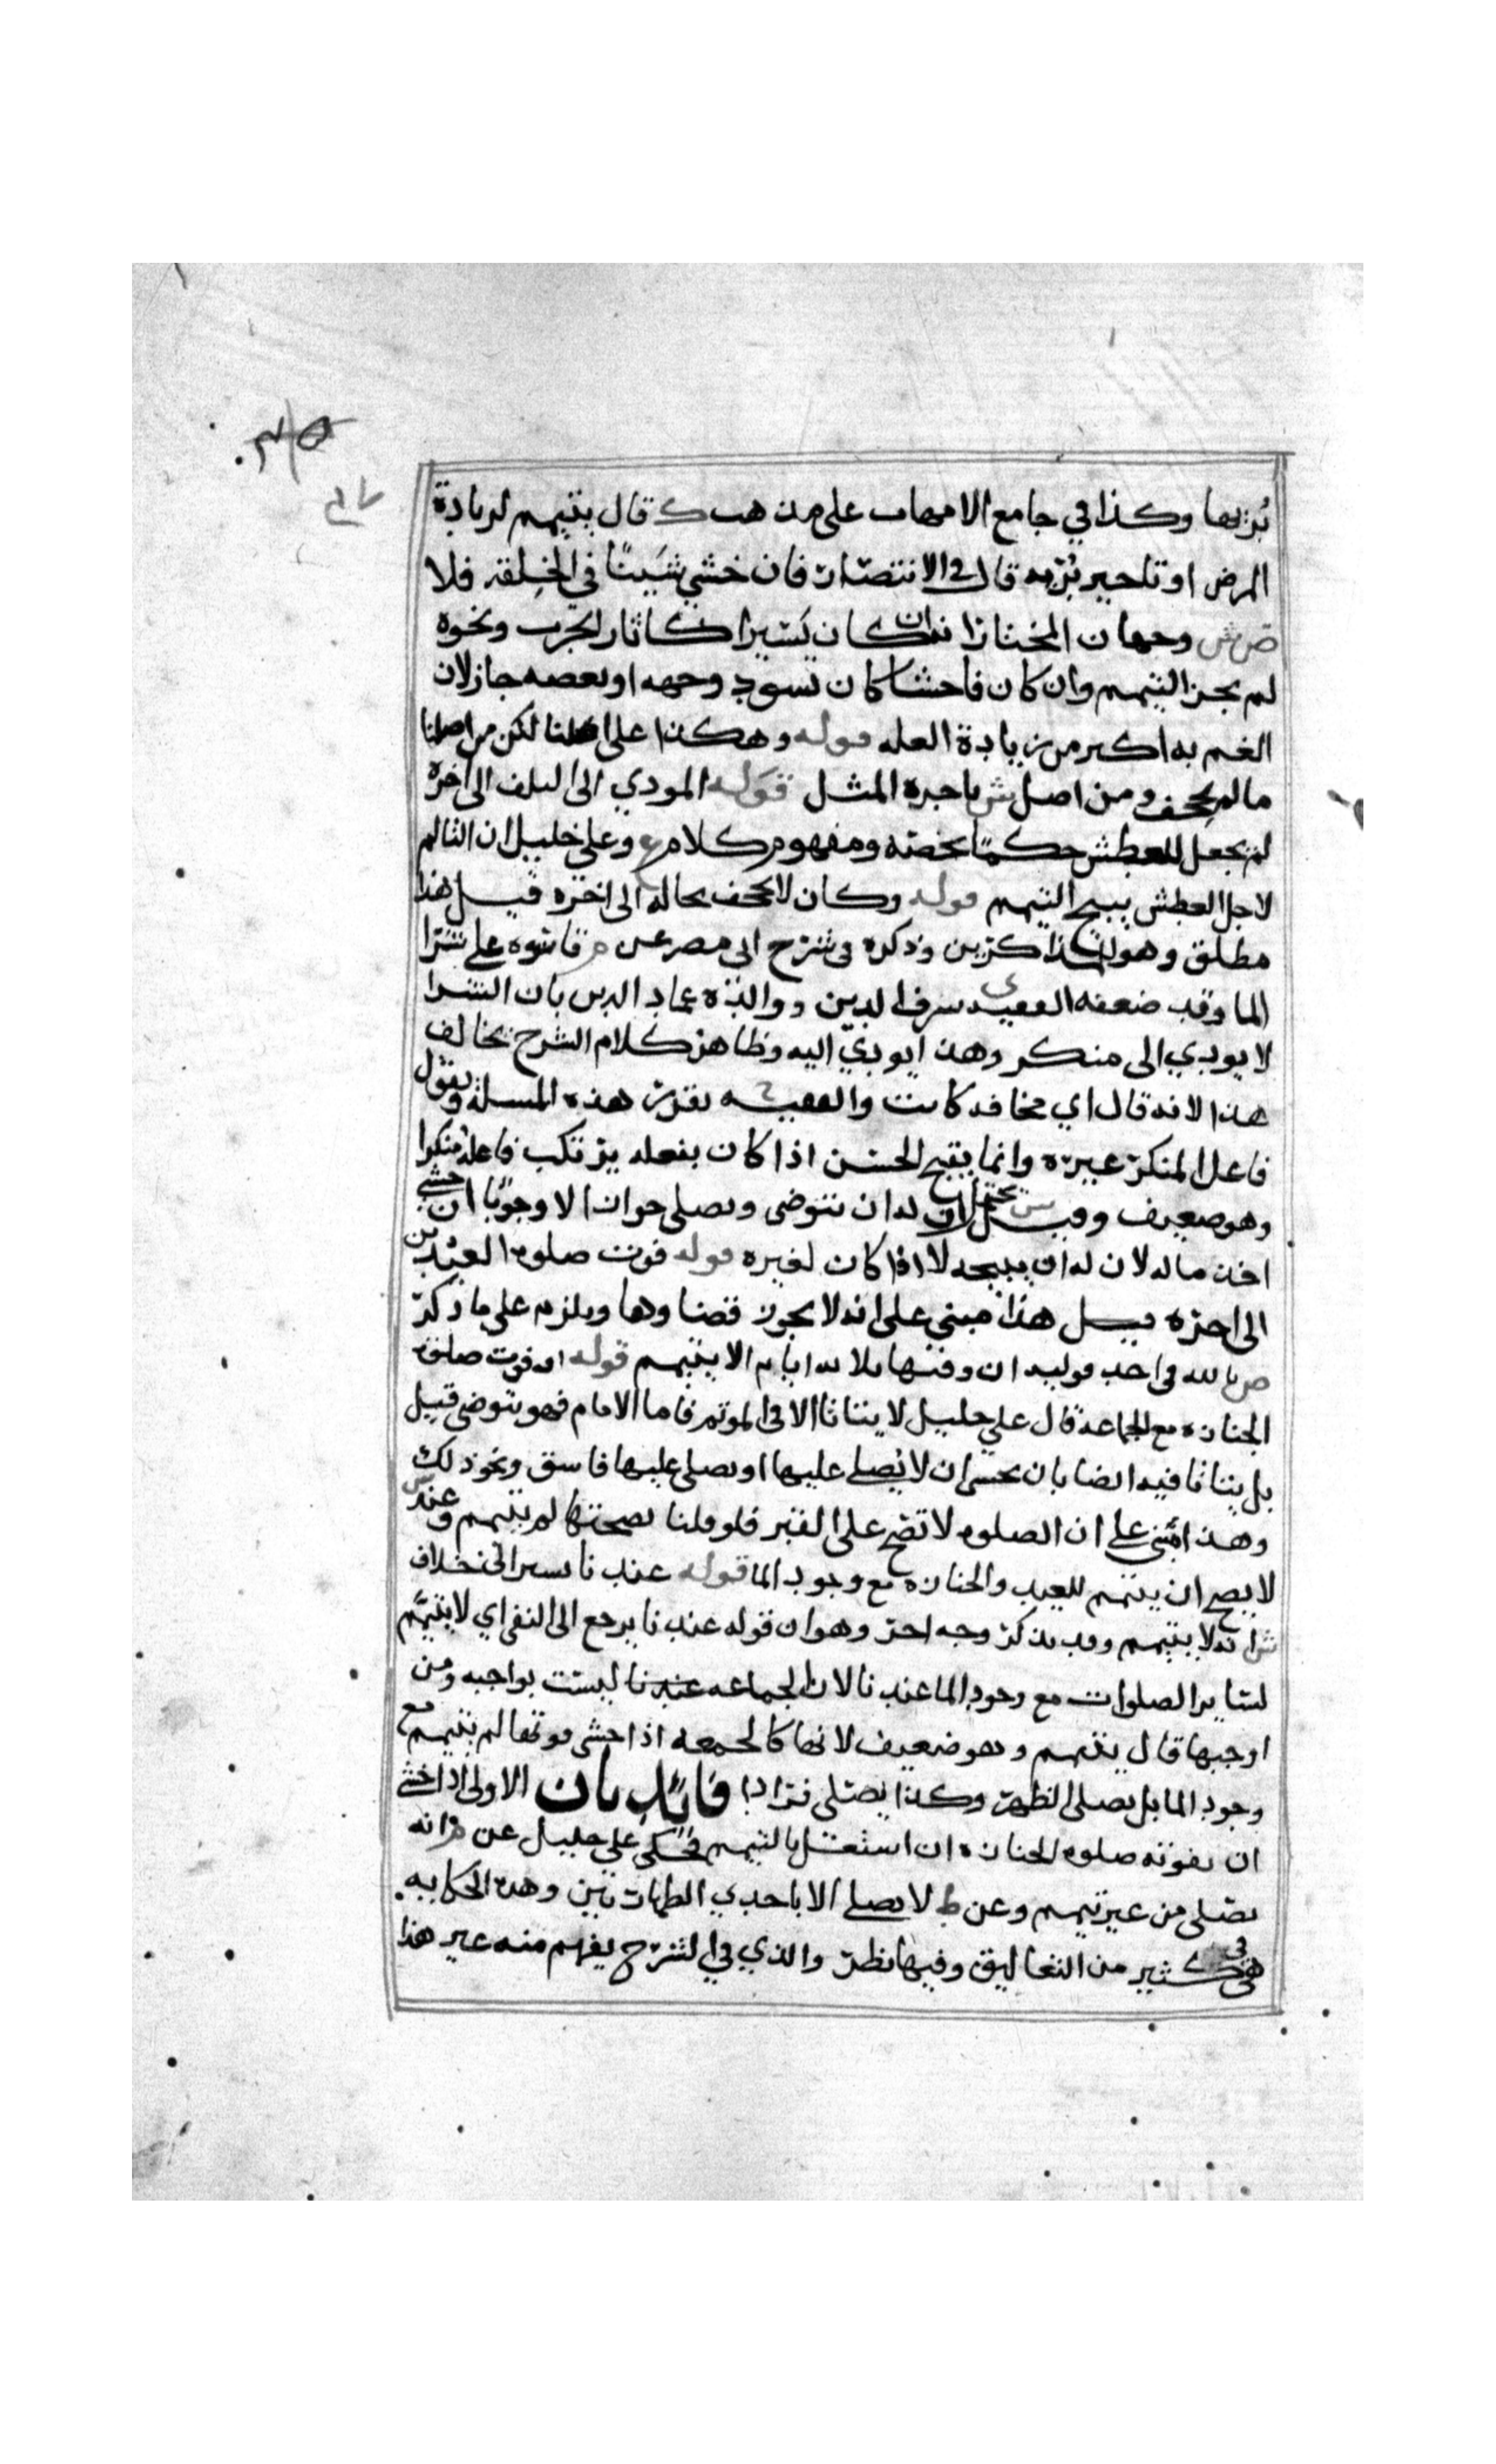 برءها وكذا في جامع الامهات على مذهب ك قال يتيمم لزيادة
المرض او تاخير برءه قال في الانتصار فان خشي شينا في الخلقة فلا
ص ش وجهان المختار انه ان كان يسيرا كاثار الجرب ونحوه
لم يجز التيمم وان كان فاحشا كان يسود وجهه او بعضه جاز لان
الغم به اكبر من زيادة العله قوله وهكذا على اصلنا لكن من اصلنا
مالم يجحف ومن اصل ش باجرة المثل قوله المودي الى التلف الى اخره
لم يجعل للعطش حكما يخصه ومفهوم كلام وعلي خليل ان التالم
لاجل العطش يبيح التيمم قوله وكان لا يجحف بحاله الى اخره قيل هذا
مطلق وهو للمذاكرين وذكره في شرح ابي مضر عن م قاسوه على شرا
الما وقد ضعفه الفقيه شرف الدين ووالده عماد الدين بان الشرا
لا يودي الى منكر وهذا يودي اليه وظاهر كلام الشرح يخالف
هذا لانه قال اي مخافه كانت والفقيه يقرر هذه المسله ويقول
فاعل المنكر غيره وانما يقبح الحسن اذا كان بفعله يرتكب فاعله منكرا
وهو ضعيف وقيل س يحتمل ان له ان يتوضى ويصلي جوازا لا وجوبا ان خشي
اخذ ماله لان له ان يبيحه لا اذا كان لغيره قوله فوت صلوة العيدين
الى اخره قيل هذا مبني على انه لا يجوز قضاوها ويلزم على ما ذكر
ص بالله في احد قوليه ان وقتها ثلاثة ايام الا يتيمم قوله او فوت صلوة
الجنازه مع الجماعة قال علي خليل لا يتاتا الا في الموتم فاما الامام فهو يتوضى قيل
بل يتاتا فيه ايضا بان يخشى ان لا يصلي عليها او يصلي عليها فاسق ونحو ذلك
وهذا مبني على ان الصلوه لا تصح على القبر فلو قلنا بصحتها لم يتيمم وعند ش
لا يصح ان يتيمم للعيد والجنازه مع وجود الما قوله عندنا يسير الى خلاف
ش انه لا يتيمم وقد يذكر وجه اخر وهو ان قوله عندنا يرجع الى النفي اي لا يتيمم
لساير الصلوات مع وجود الما عندنا لان الجماعه عندنا ليست بواجبه ومن
اوجبها قال يتيمم وهو ضعيف لانها كالجمعه اذا خشي فوتها لم يتيمم مع
وجود الما بل يصلي الظهر وكذا يصلي فرادا فائدتان الاولى اذا خشي
ان تفوته صلوة الجنازه ان اشتغل بالتيمم فحكى علي خليل عن م انه
يصلي من غير تيمم وعن ط لا يصلي الا باحدى الطهارتين وهذه الحكايه
هي في كثير من التعاليق وفيها نظر والذي في الشرح يفهم منه غير هذا